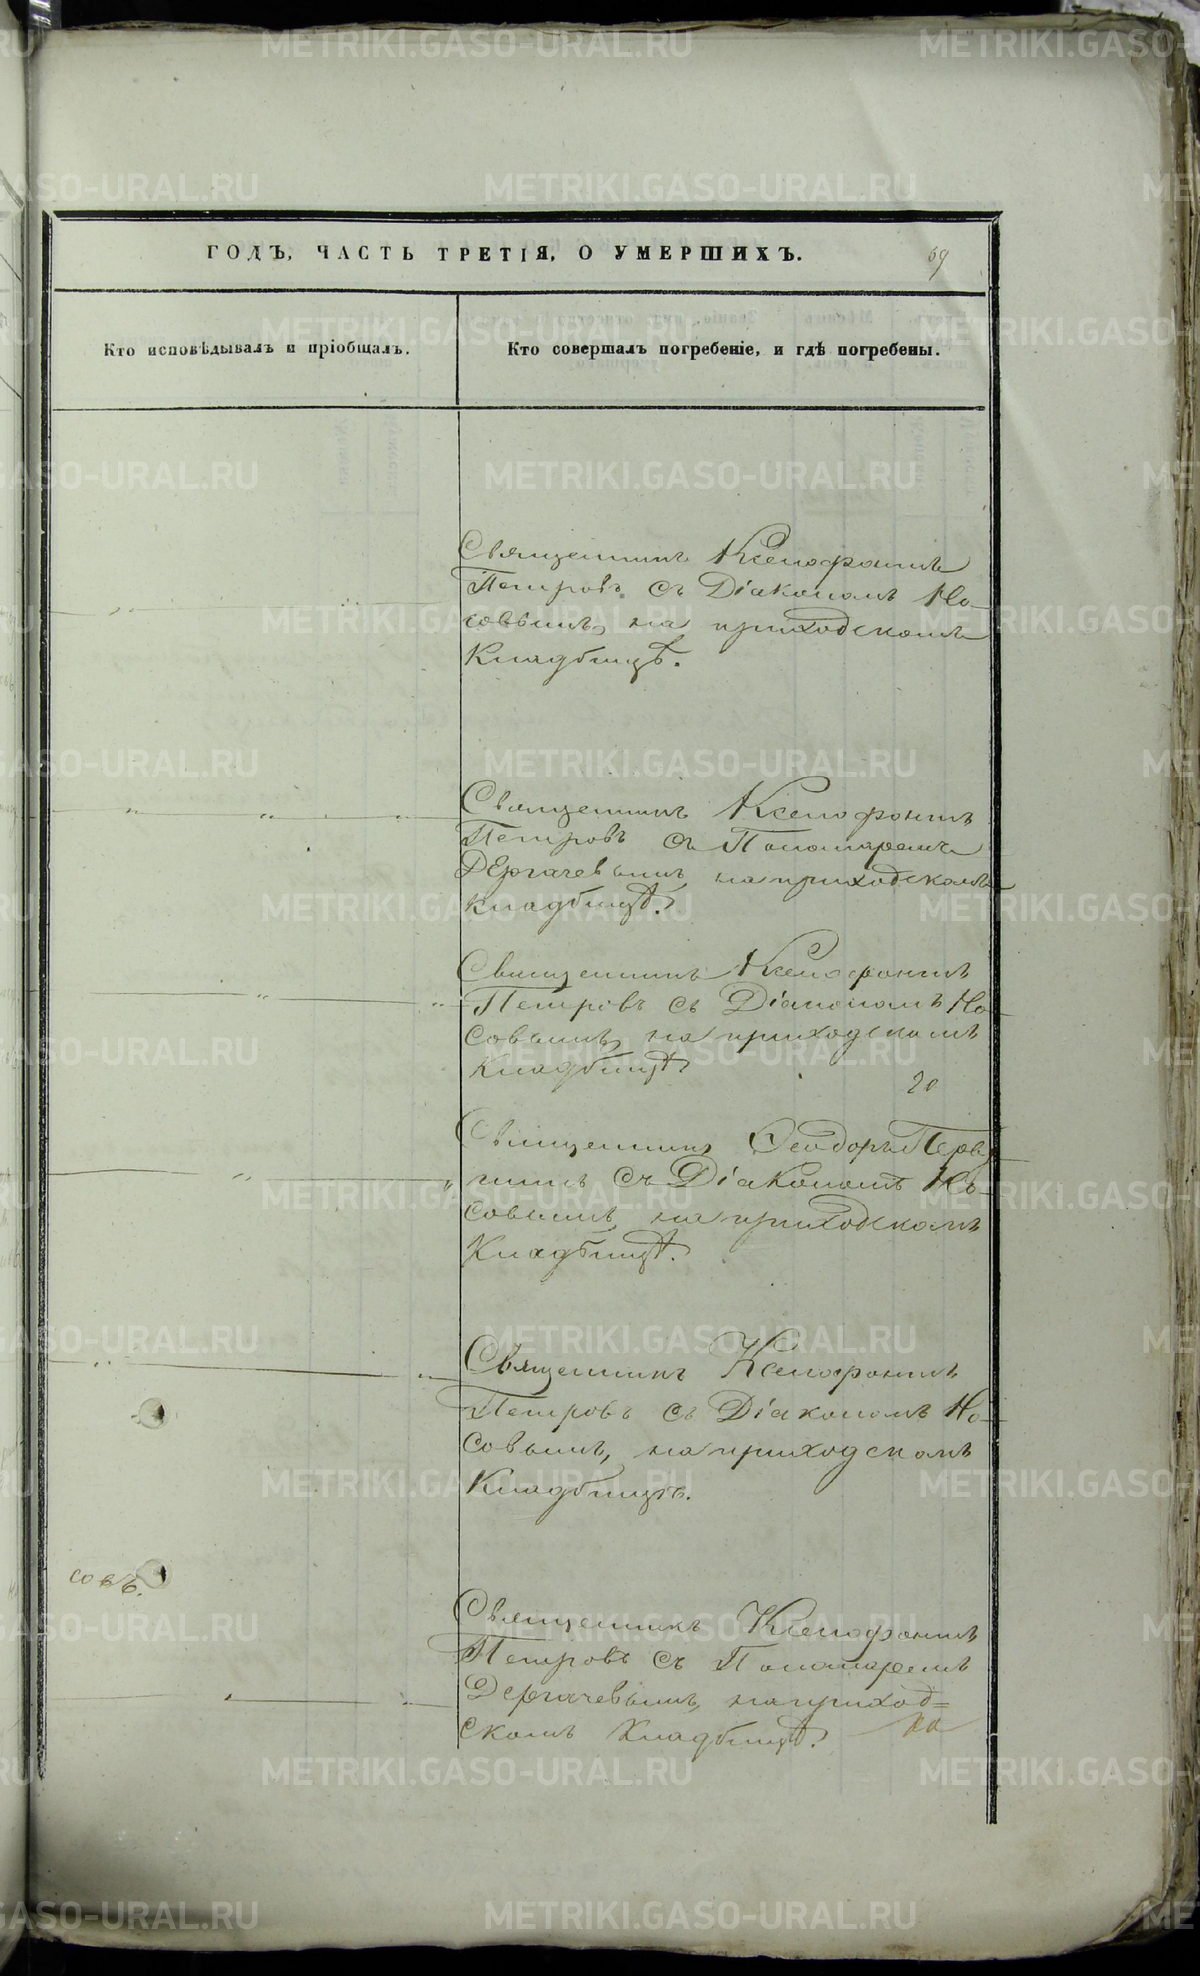 ГОДЪ, ЧАСТЬ ТРЕТІЯ, О УМЕРШИХЪ.
69
Кто исповѣдывалъ и пріобщалъ.
Кто совершалъ погребеніе, и гдѣ погребены.
Священникъ Ксенофонтъ
Петровъ съ Діакономъ Но-
совымъ, на приходскомъ
Кладбищѣ.
Священникъ Ксенофонтъ
Петровъ съ Пономаремъ
Дергачевымъ на приходскомъ
кладбищѣ.
Священникъ Ксенофонтъ
Петровъ съ Діакономъ Но-
совымъ, на приходскомъ
Кладбищѣ
20
Священникъ Ѳеодоръ
съ Діакономъ Но-
совымъ на приходскомъ
Кладбищѣ.
Священникъ Ксенофонтъ
Петровъ съ Діакономъ Но-
совымъ, на приходскомъ
Кладбищѣ.
совъ.
Священникъ Ксенофонтъ
Петровъ съ Пономаремъ
Дергачевымъ, на приход=
скомъ Кладбищѣ.
METRIKI.GASO-URAL.RU